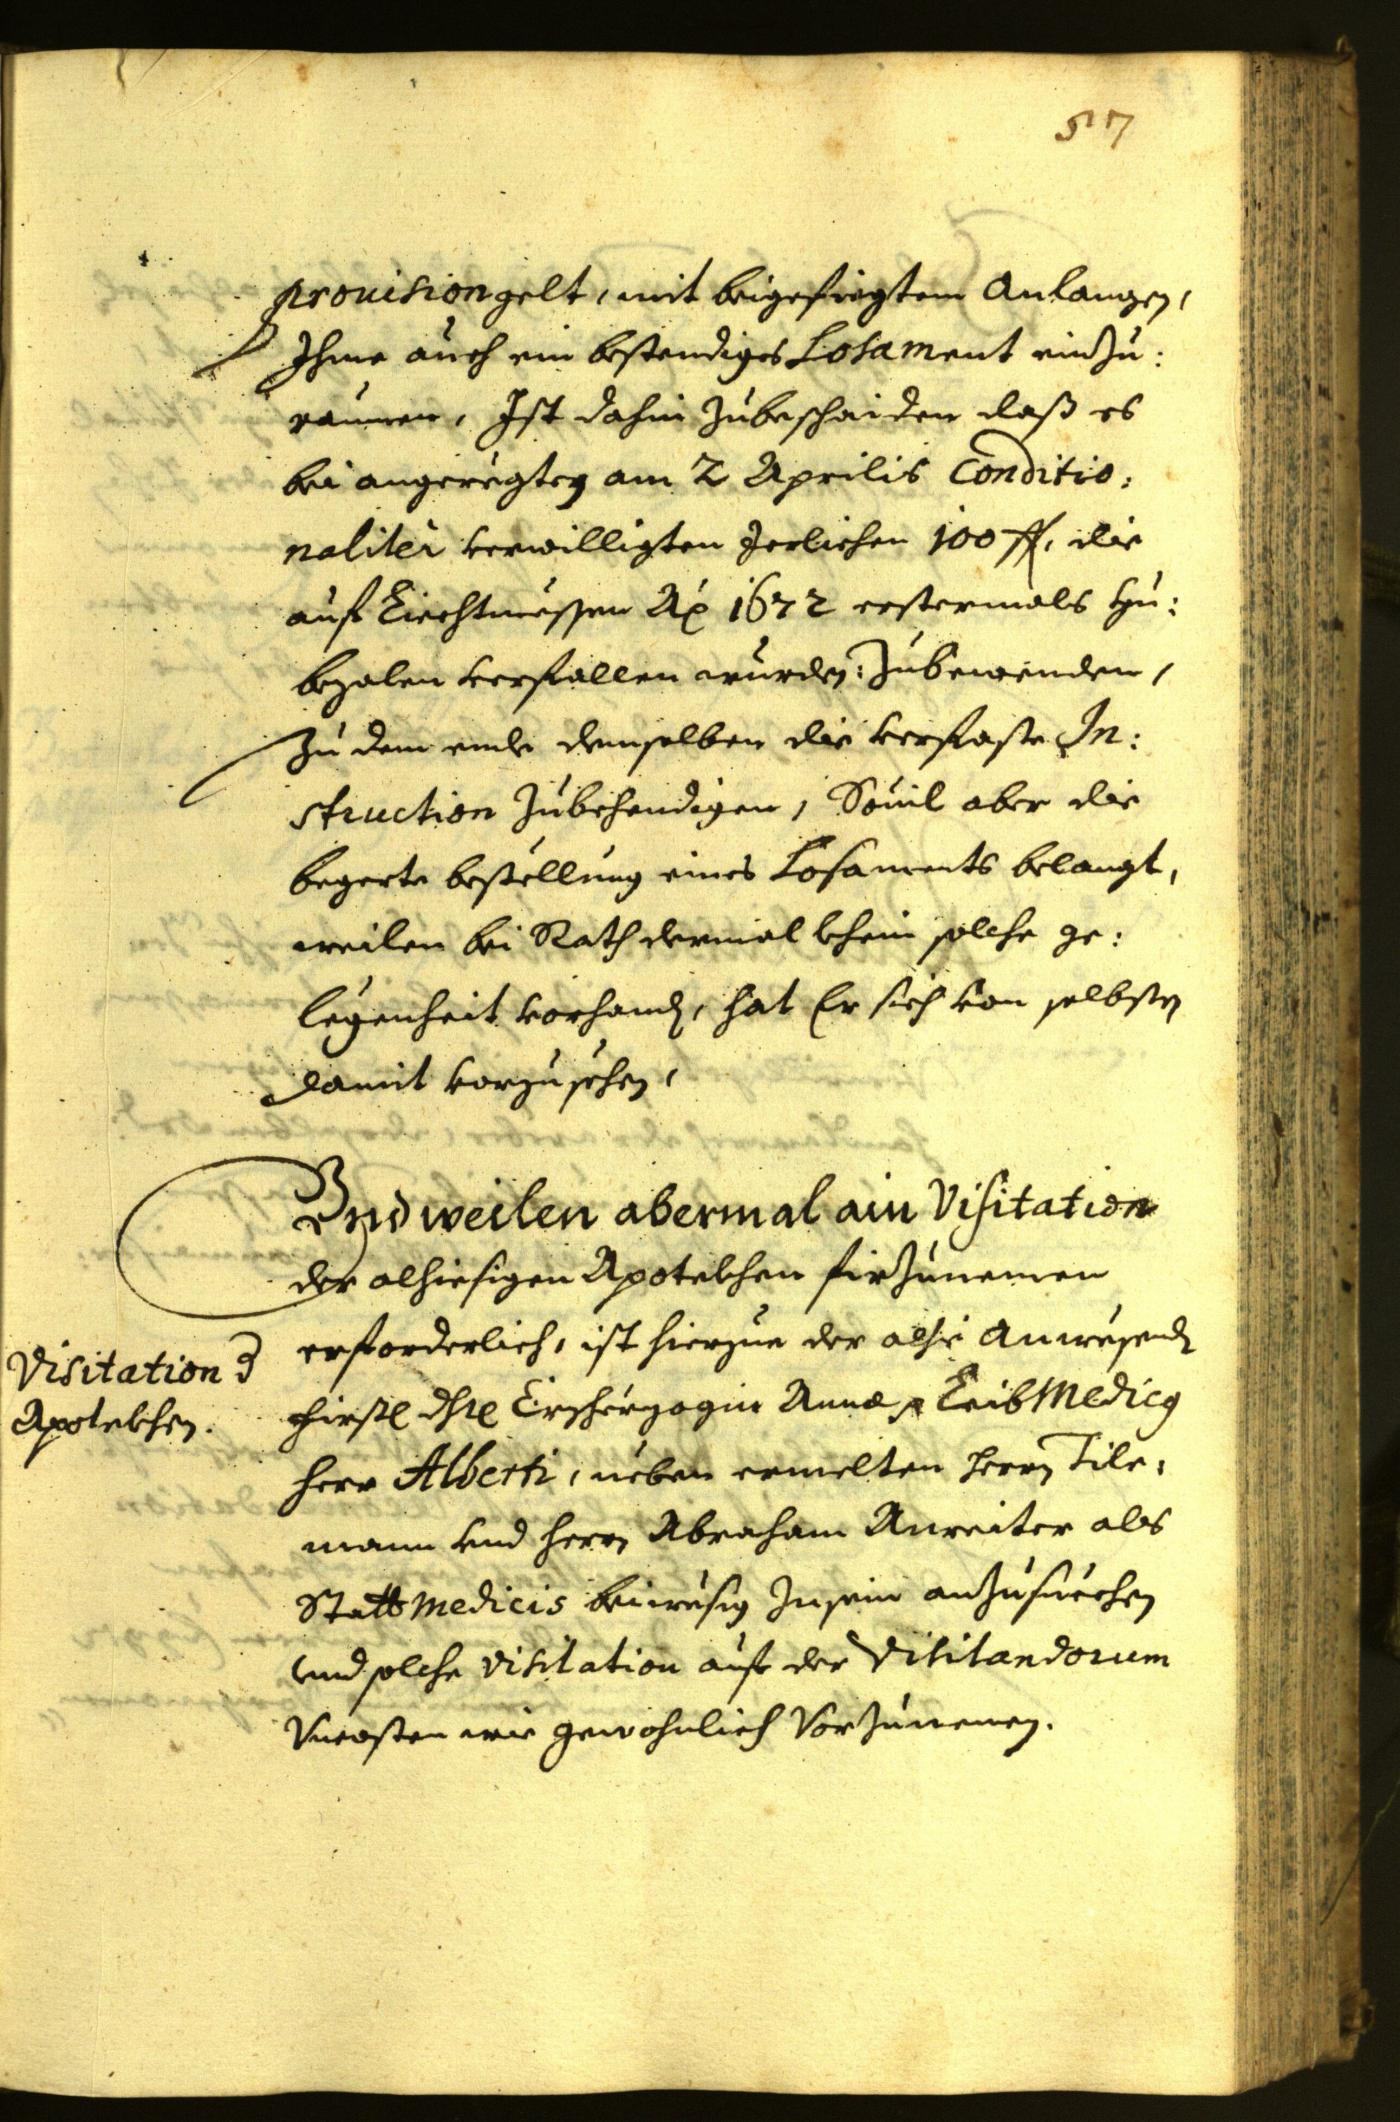 57
provisiongelt, mit beigefiegtem Anlangen,
Ihme auch ein bestendiges Losament einzu:
raumen, Ist dahin zubeschaiden daß es
bei angeregten am 2 Aprilis Conditio:
naliter verwilligten Jerlichen 100 fl, die
auf Liechtmessen Ao 1672 erstermals zu:
bezalen verfallen wurden: zubewenden,
zu dem ende demselben die verfaste In:
struction zubehendigen, Souil aber die
begerte bestellung eines Losaments belangt,
weilen bei Rath dermal khein solche ge:
legenheit vorhanden, hat Er sich von selbsten
damit vorzusehen,
Vnd weilen abermal ain Visitation
der alhiesigen Apotekhen firzunemen
erforderlich, ist hierzue der alhie Anwesende
Visitation d
Apotekhen.
firstl Dhrl Erzherzogin Annæ Leib Medicus
Herr Alberti, neben ermelten Herrn Tile:
mann vnd Herrn Abraham Anreiter als
Statt Medicis beiwesig zusein anzusuechen
vnd solche Visitation auf der Visitandorum
Vncosten wie gewohnlich Vorzunemen.